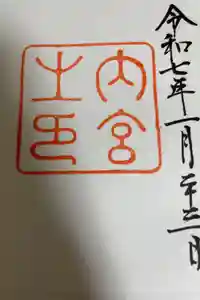 令和七年一月二十三日
内宮
之印